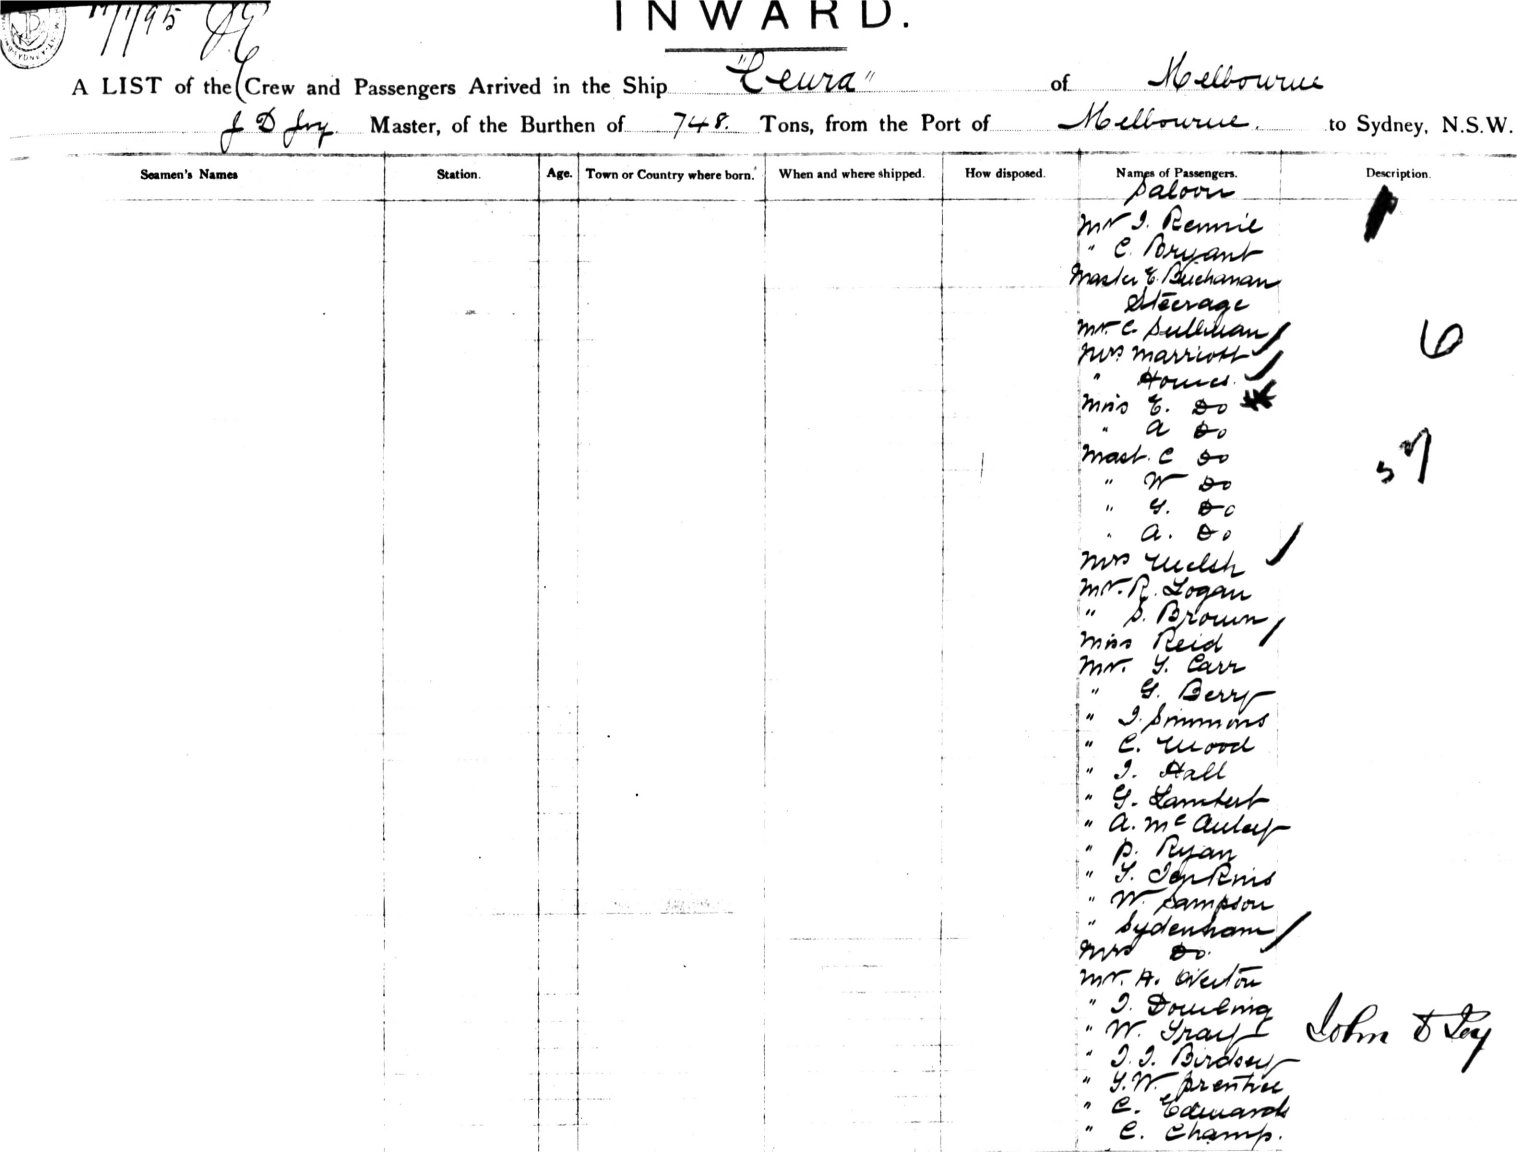 17/1/95
INWARD.
A LIST of the Crew and Passengers Arrived in the Ship "Leura" of Melbourne
J D Joy Master, of the Burthen of 748. Tons, from the Port of Melbourne. to Sydney, N.S.W.
Seamen's Names Station. Age. Town or Country where born. When and where shipped. How disposed. Names of Passengers. Description.
Saloon
Mr J. Rennie
" C. Bryant
Master E. Buchanan
Steerage
Mr. C. Sullivan
Mrs Marriott
6
" Homes.
Miss E. Do
" A Do
Mast. C Do
" W Do
" G. Do
" A. Do
Mrs Welsh
Mr. R. Logan
" S. Brown
Miss Reid
Mr. G. Carr
" G. Berry
" J. Simmons
" C. Wood
" J. Hall
" G. Lambert
" A. McAuley
" P. Ryan
" T. Jenkins
" W. Sampson
" Sydenham
Mrs Do.
Mr. H. Overton
" J. Dowling
" W. Gray
John D Joy
" J. J. Birdsey
" G. W. Prentice
" C. Edwards
" C. Champ.